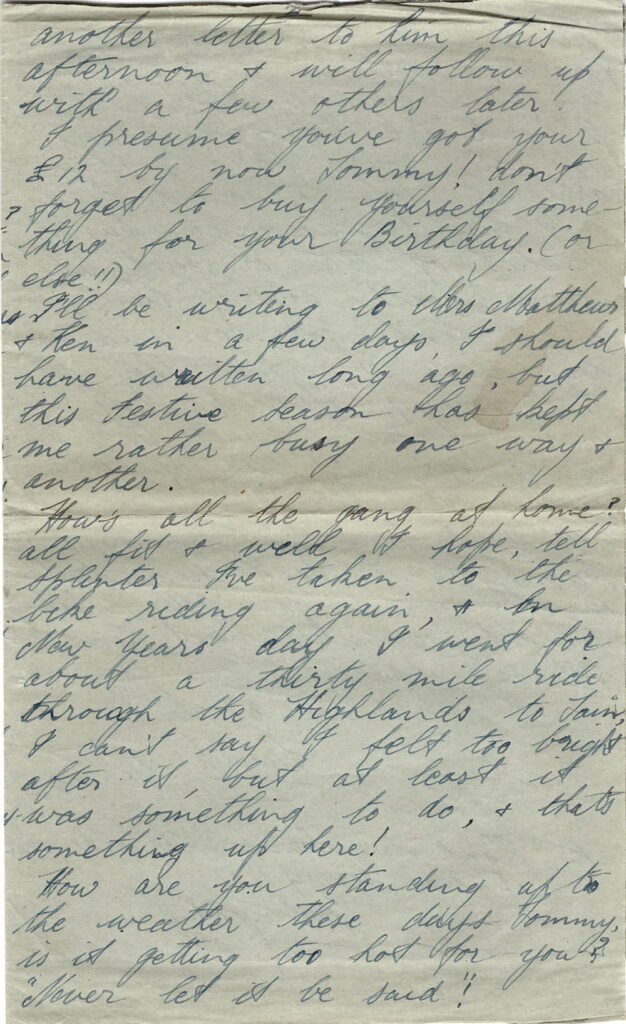 another letter to him this
afternoon & will follow up
with a few others later.
I presume you've got your
£12 by now Tommy! don't
forget to buy yourself some-
thing for your Birthday. (or
else!!)
I'll be writing to Mrs Matthews
& Ken in a few days, I should
have written long ago, but
this Festive season has kept
me rather busy one way &
another.
How's all the gang at home?
all fit & well I hope, tell
Splinter I've taken to the
bike riding again, & on
New Years day I went for
about a thirty mile ride
through the Highlands to Tain,
I can't say I felt too bright
after it, but at least it
was something to do, & thats
something up here!
How are you standing up to
the weather these days Tommy,
is it getting too hot for you?
"Never let it be said"!